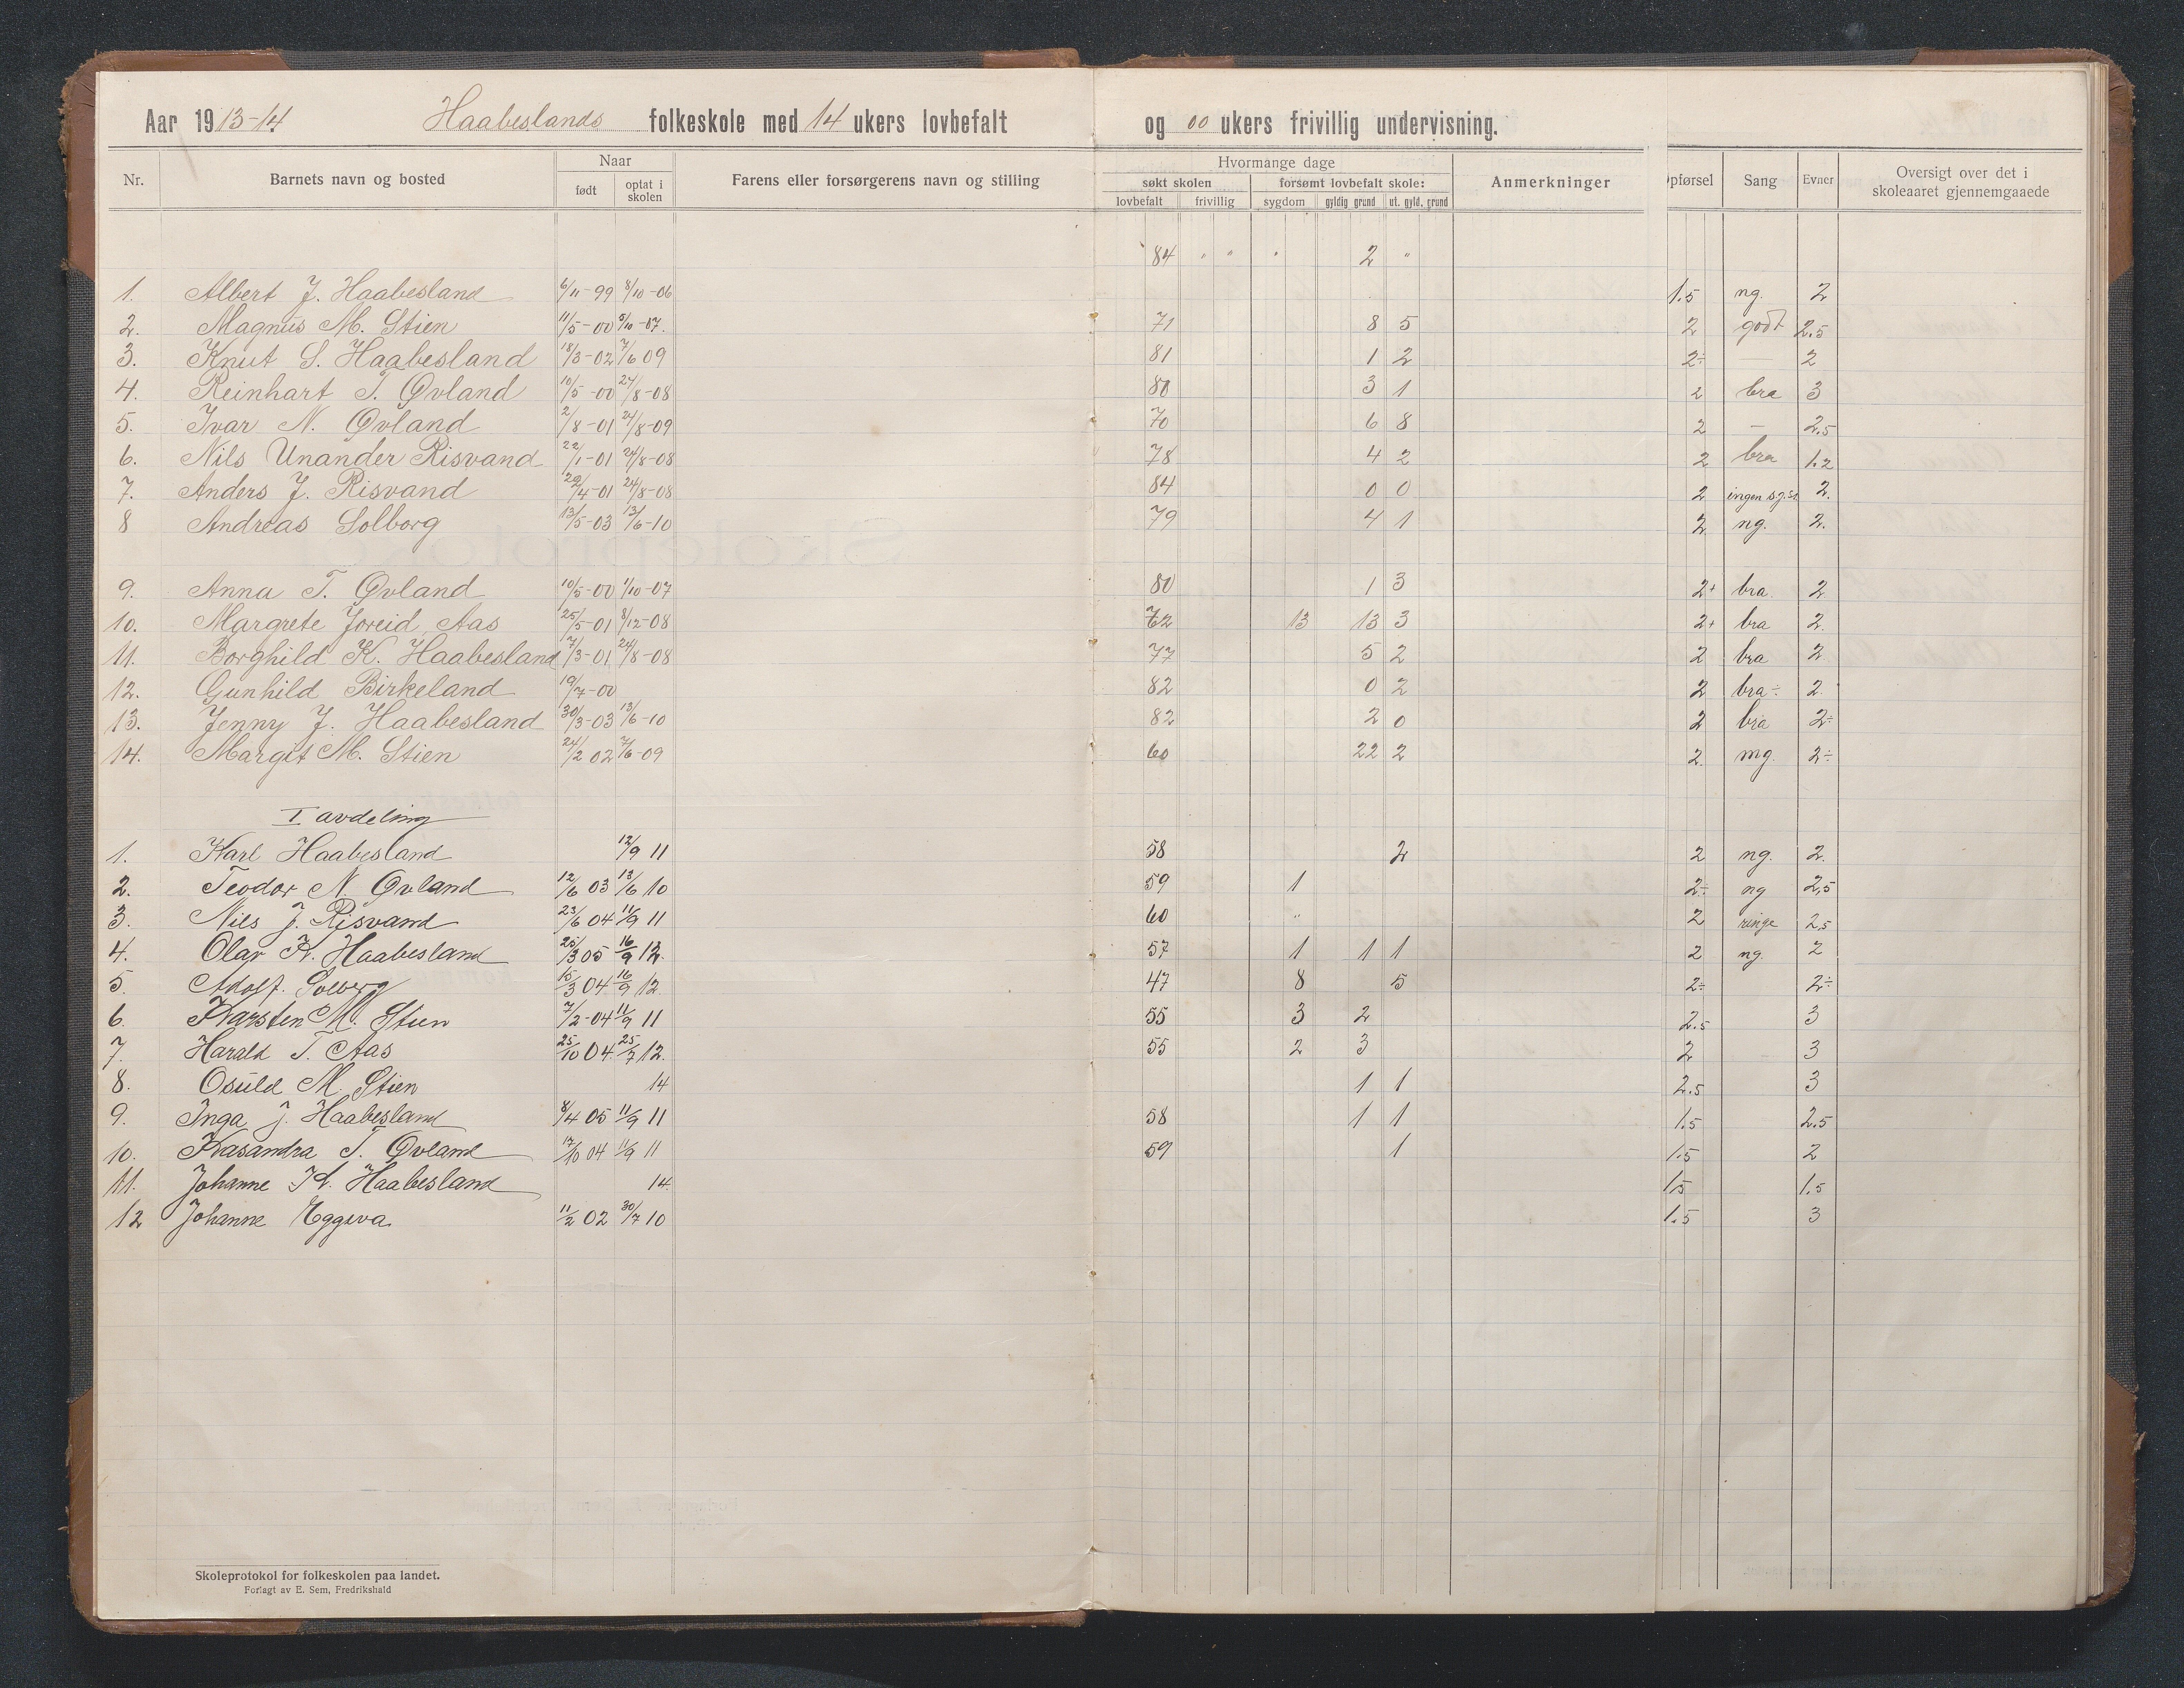 Aar 1913-14 Haabeslands folkeskole med 14 ukers lovbefalt og 00 ukers frivillig undervisning.
Nr. Barnets navn og bosted Naar født optat i skolen Farens eller forsørgerens navn og stilling Hvormange dage søkt skolen lovbefalt frivillig forsømt lovbefalt skole: sygdom gyldig grund ut. gyld. grund Anmerkninger Opførsel Sang Evner Oversigt over det i skoleaaret gjennemgaaede
84 " " " 2 "
1. Albert J. Haabesland 6/11-99 8/10-06 1.5 ng. 2
2. Magnus M. Stien 11/5-00 5/10-07. 71 8 5 2 godt 2.5
3. Knut S. Haabesland 18/3-02 7/6 09 81 1 2 2÷ — 2
4. Reinhart T. Øvland 10/5-00 24/8-08 80 3 1 2 bra 3
5. Ivar N. Øvland 2/8-01 24/8-09 70 6 8 2 — 2.5
6. Nils Unander Risvand 22/1-01 24/8-08 78 4 2 2 bra 1.2
7. Anders J. Risvand 29/4-01 24/8-08 84 0 0 2 ingen sg.st. 2.
8 Andreas Solborg 13/5-03 13/6-10 79 4 1 2 ng. 2.
9. Anna T. Øvland 10/5-00 1/10-07 80 1 3 2+ bra. 2
10. Margrete Joreid Aas 25/5-01 8/12-08 72 13 13 3 2+ bra 2.
11. Borghild K. Haabesland 17/3-01 24/8-08 77 5 2 2 bra 2
12. Gunhild Birkeland 19/7-00 82 0 2 2 bra÷ 2.
13. Jenny J. Haabesland 30/3-03 13/6-10 82 2 0 2 bra 2÷
14. Margit M. Stien 24/2 02 7/6-09 60 22 2 2. mg. 2÷
I avdeling
1. Karl Haabesland 12/9 11 58 2 2 ng. 2.
2. Teodor N. Øvland 12/6 03 13/6 10 59 1 2÷ ng 2,5
3. Nils J. Risvand 23/6 04 11/9 11 60 " 2 ringe 2,5
4. Olav K. Haabesland 25/3 05 16/9 12. 57 1 1 1 2 ng. 2
5. Adolf. Solberg 15/3 04 16/9 12 47 8 5 2÷ 2÷
6. Karsten M. Stien 7/2-04 11/9 11 55 3 2 2.5 3
7. Harald T. Aas 25/10 04 25/7 12. 55 2 3 2 3
8. Osuld M. Stien 14 1 1 2.5 3
9. Inga J. Haabesland 8/4 05 11/9 11 58 1 1 1.5 2.5
10. Kasandra T. Øvland 17/10 04 11/9 11 59 1 1.5 2
11. Johanne K. Haabesland 14. 1.5 1.5
12 Johanne Eggeva 11/2 02 30/7 10 1.5 3
Skoleprotokol for folkeskolen paa landet.
Forlagt av E. Sem, Fredrikshald